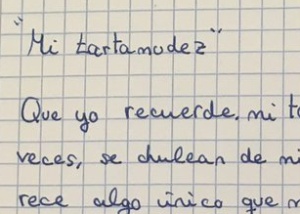 "Mi tartamudez"
Que yo recuerde, mi
veces, se chulean de
rece algo único que